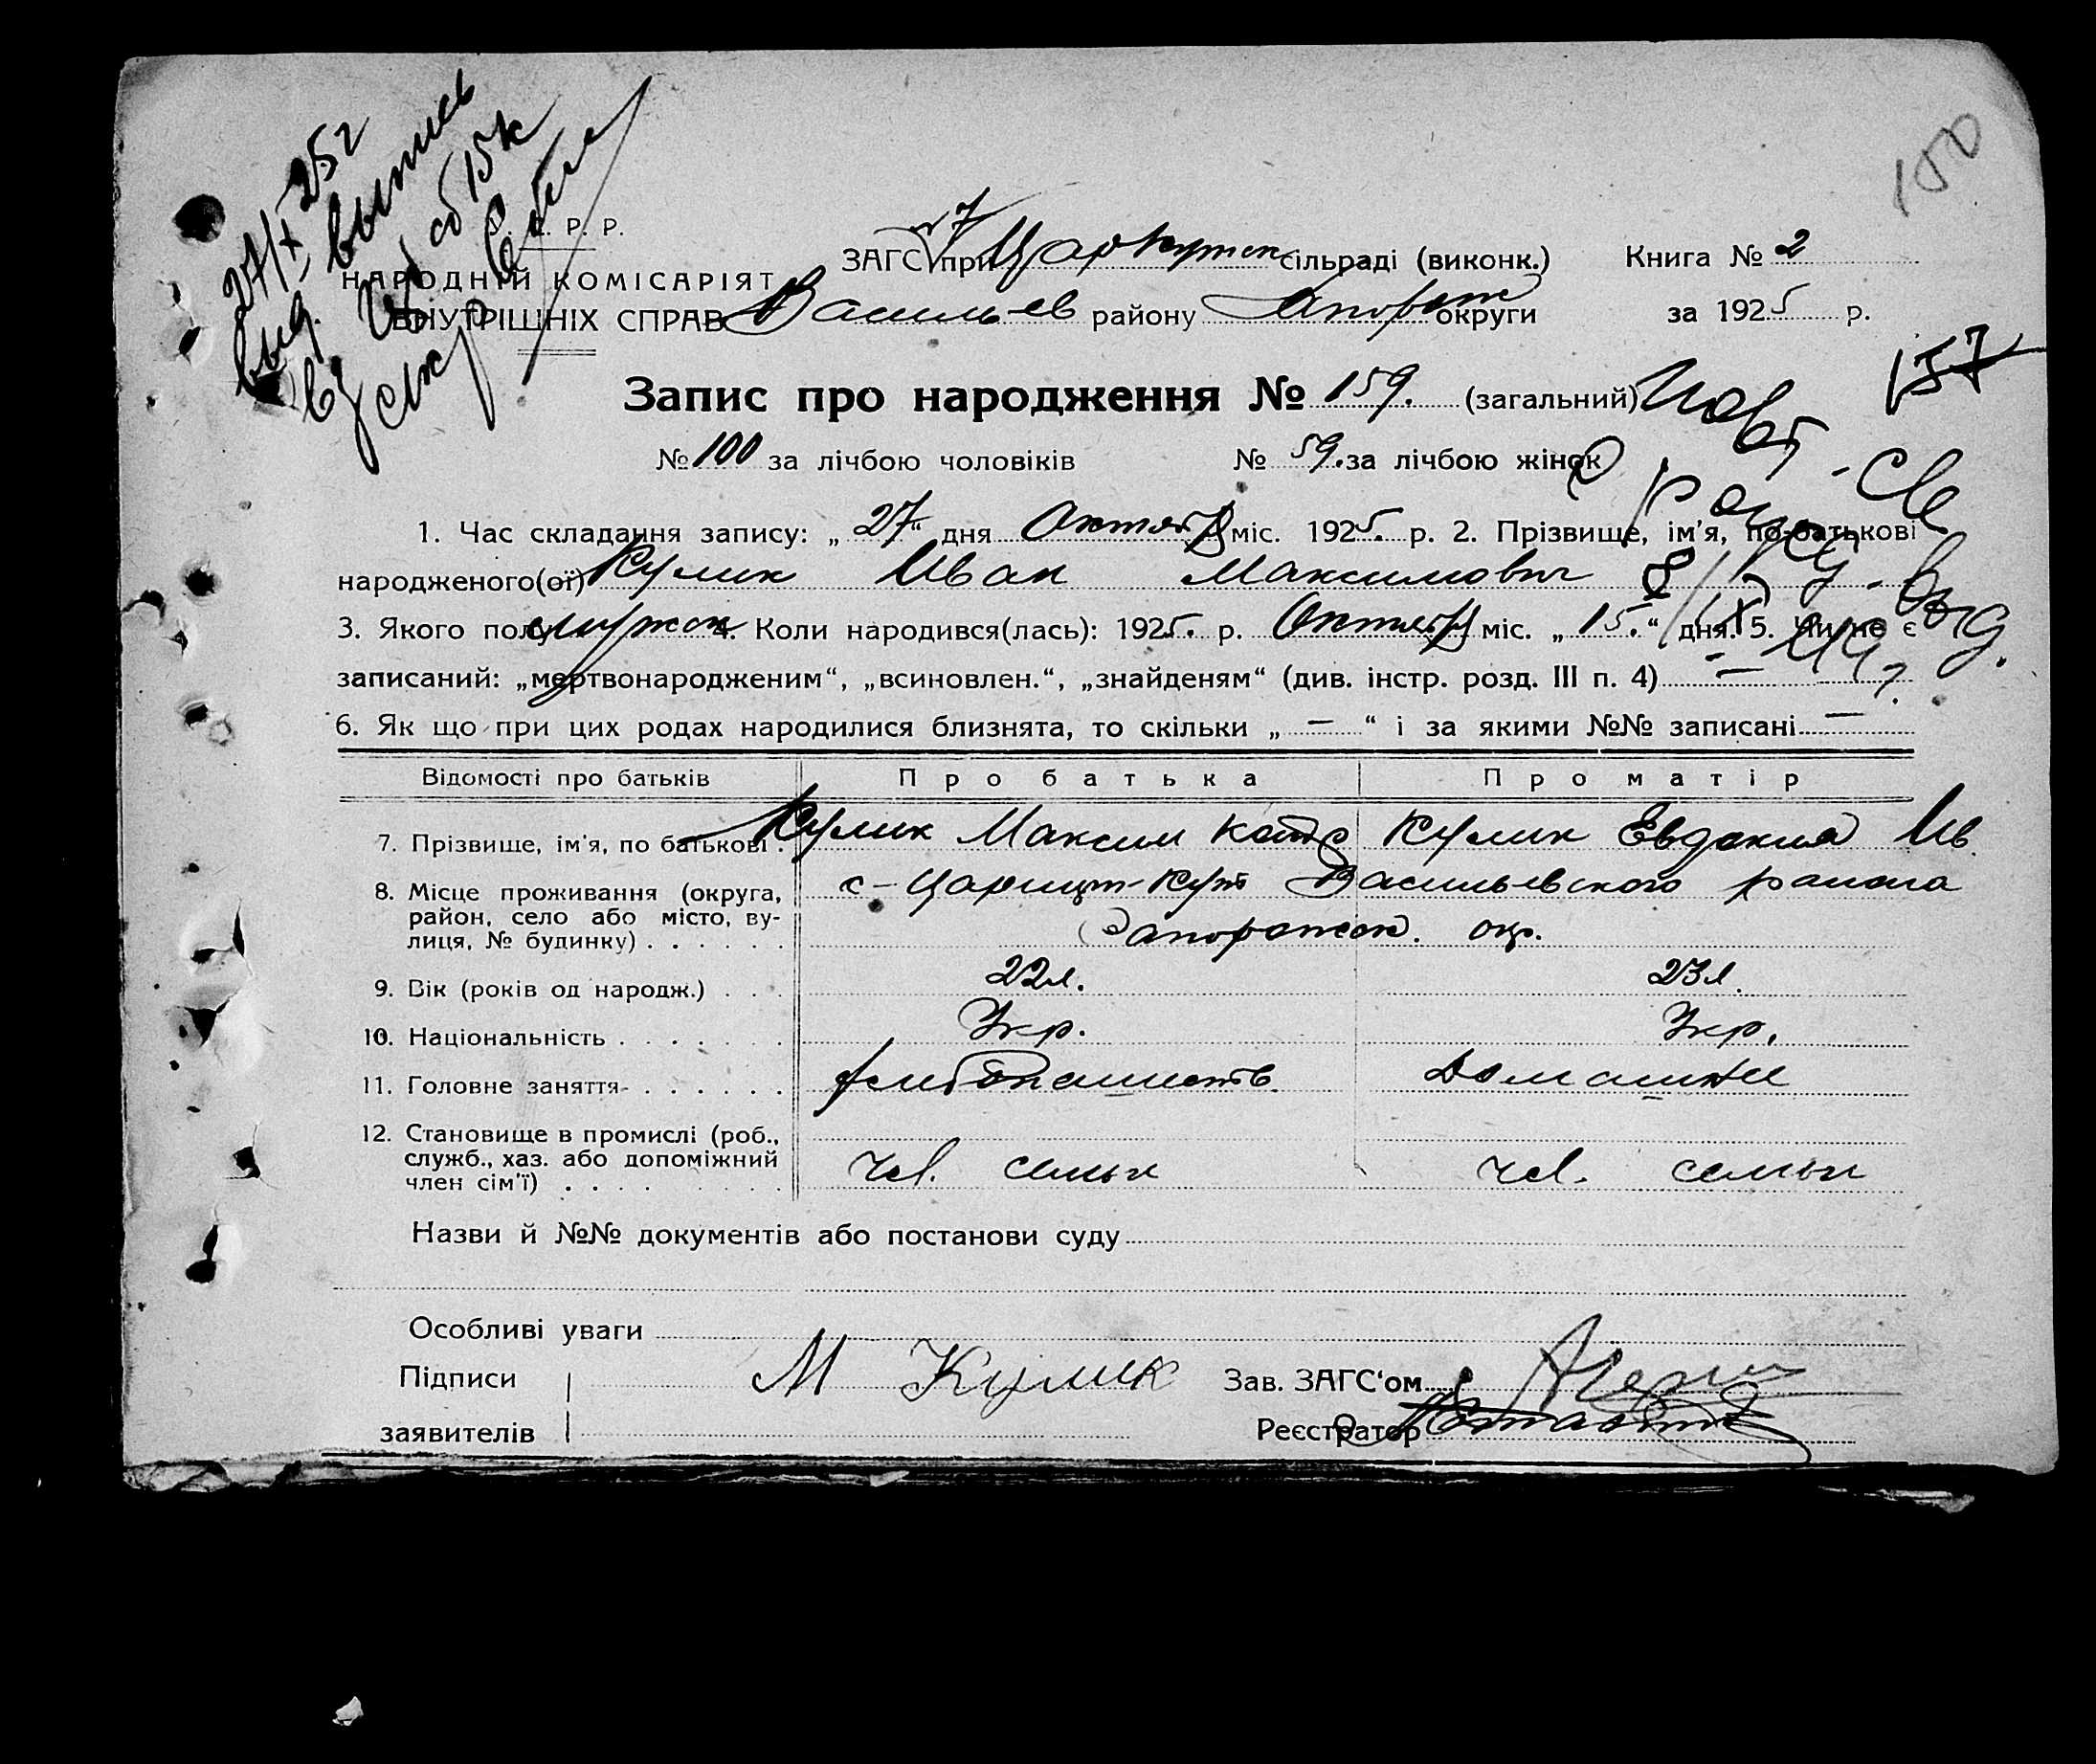 27/X 25г
выпись
выд.
150
С. Р. Р.
НАРОДНІЙ КОМІСАРІЯТ
ВНУТРІШНІХ СПРАВ
ЗАГС при Царкутск сільраді (виконк.) Книга № 2
Васильев району Запорож округи за 1925 р.
157
Запис про народження № 159. (загальний)
№ 100 за лічбою чоловіків № 59. за лічбою жінок
1. Час складання запису: „27“ дня Октября міс. 1925. р. 2. Прізвище, ім'я, по-батькові
народженого(ої) Кулик Иван Максимович
3. Якого полу мужск 4. Коли народився(лась): 1925. р. Октября міс. „15.“ дня. 5. Чи не є
записаний: „мертвонародженим“, „всиновлен.“, „знайденям“ (див. інстр. розд. III п. 4) —
6. Як що при цих родах народилися близнята, то скільки „—“ і за якими №№ записані —
Відомості про батьків Про батька Про матір
7. Прізвище, ім'я, по батькові . Кулик Максим Кулик Евдокия Ив.
8. Місце проживання (округа, район, село або місто, ву-лиця, № будинку) . . . . . . с-Царицт-Кут Васильевского района
Запорожск. окр.
9. Вік (років од народж.) . . . 22л. 23л.
10. Національність . . . . . . . Укр. Укр.
11. Головне заняття . . . . . . Хлебопашеств. Домашни
12. Становище в промислі (роб., служб., хаз. або допоміжний член сім'ї) . . . . . . . чл. семьи чл. семьи
Назви й №№ документів або постанови суду
Особливі уваги
Підписи М Кулик Зав. ЗАГС'ом
заявителів Реєстратор